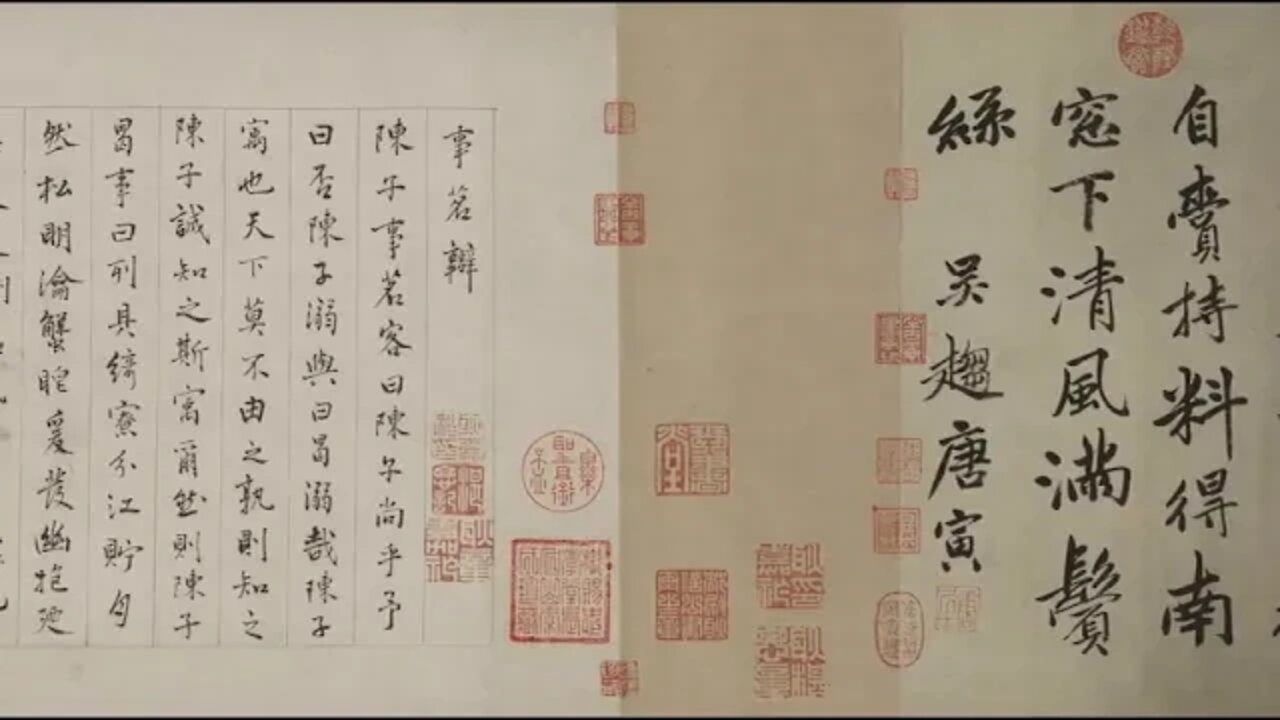 自賷持料得南
窓下清風滿鬢
絲 吳趨唐寅
事茗辯
陳子事茗客曰陳子尚乎予
曰否陳子溺與曰曷溺哉陳子
寓也天下莫不由之孰則知之
陳子誠知之斯寓爾然則陳子
曷事曰列具綺寮分江貯月
然松明瀹蟹眶爰發幽抱廼